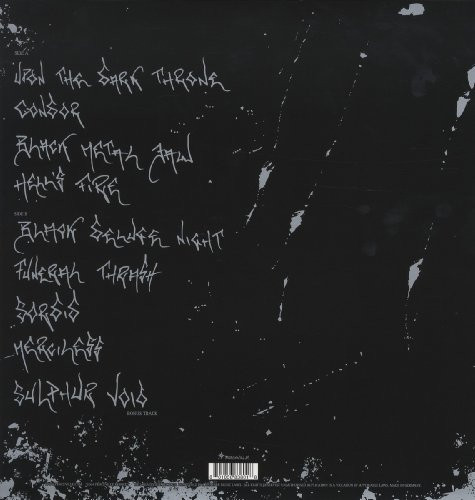 SIDE A
UPON THE DARK THRONE
CONDOR
BLACK METAL JAW
HELL'S FIRE
SIDE B
BLACK DELUGE NIGHT
FUNERAL THRASH
SORDID
MERCILESS
SULPHUR VOID
BONUS TRACK